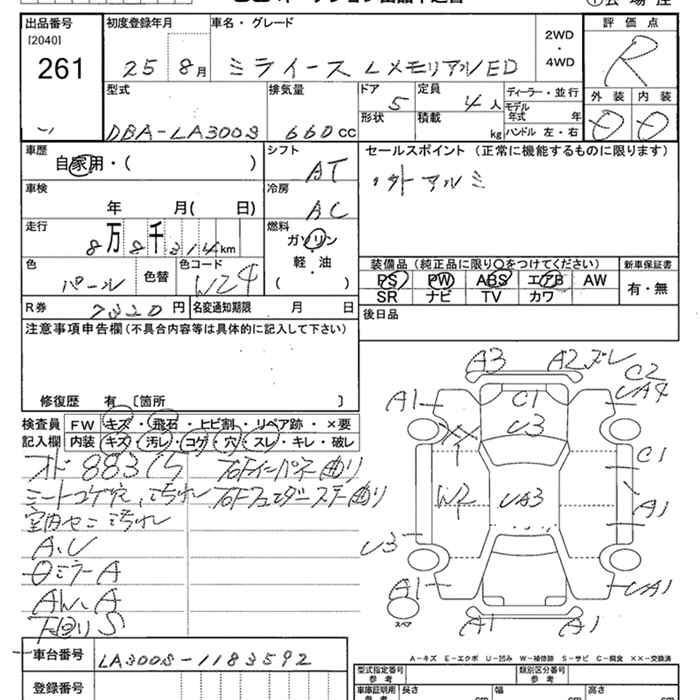 出品番号 初度登録年月 車名・グレード 2WD・4WD 評価点
[2040]
261 25 8月 ミライース Lメモリアル ED R
型式 排気量 ドア 5 定員 4人 ディーラー・並行 外装 内装
DBA-LA300S 660cc 形状 積載 kg モデル年式 年 ハンドル 左・右
車歴 シフト セールスポイント (正常に機能するものに限ります)
自家用・( ) AT
車検 冷房
年 月( 日) AC
走行 燃料
8万8千314km ガソリン・軽油
( )
色 色替 色コード
パール W24
装備品 (純正品に限り○をつけてください) 新車保証書
PS PW ABS エアB AW 有・無
SR ナビ TV カワ
R券 7320円 名変通知期限 月 日 後日品
注意事項申告欄 (不具合内容等は具体的に記入して下さい)
修復歴 有 〔箇所 〕
検査員 FW キズ・飛石・ヒビ割・リペア跡・×要
記入欄 内装 キズ・汚レ・コゲ・穴・スレ・キレ・破レ
シートコゲ穴、汚れ
A.U
ミラーA
AW.A
下回りS
A3 A2 ズレ
C2
UA4
A1 C1
U3
C1
W2 UA3 A1
U3
A1 UA1
A1 A1
スペア
A-キズ E-エクボ U-凹み W-補修跡 S-サビ C-腐食 ××-交換済
車台番号 LA300S-1183592 型式指定番号 参考 類別区分番号 参考
登録番号 車庫証明用 参考 長さ cm 幅 cm 高さ cm